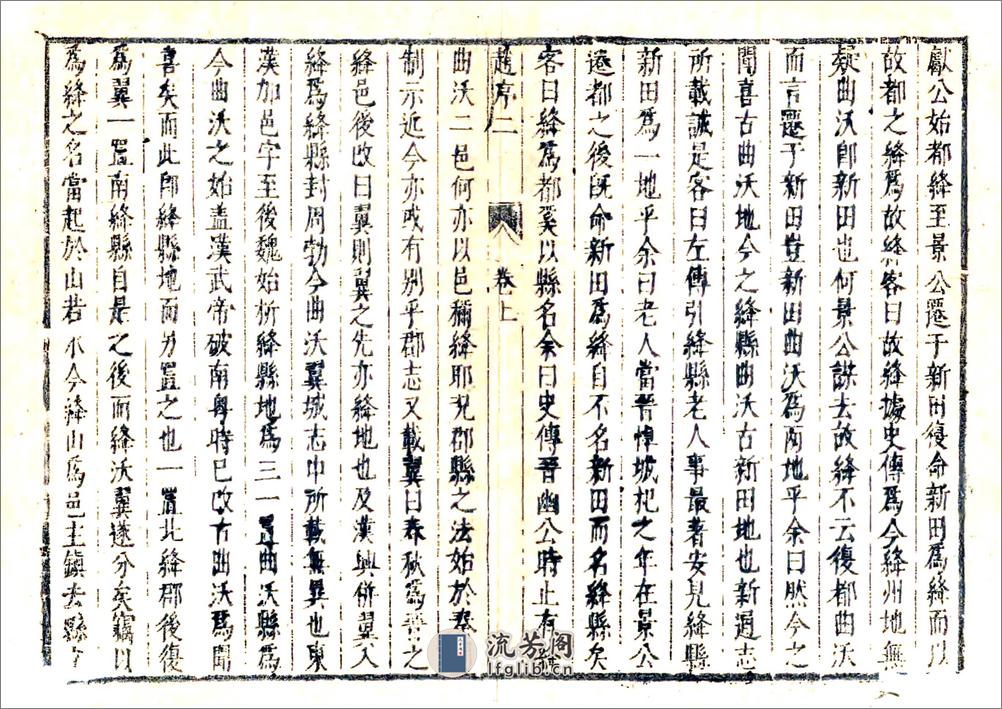 獻公始都絳至景公遷于新田復命新田爲絳而以
故都之絳爲故絳客曰故絳據史傳爲今絳州地無
疑曲沃卽新田也何景公謀去故絳不云復都曲沃
而言遷于新田豈新田曲沃爲兩地乎余曰然今之
聞喜古曲沃地今之絳縣曲沃古新田地也新週志
所載誠是客曰左傳引絳縣老人事最著安見絳縣
新田爲一地乎余曰老人當晉悼城杞之年在景公
遷都之後旣命新田爲絳自不名新田而名絳縣矣
客曰絳爲都奚以縣名余曰史傳晉幽公時止有絳
趙序二
卷上
曲沃二邑何亦以邑稱絳耶况郡縣之法始於秦
制示近今亦或有別乎郡志又載翼曰春秋爲晉之
絳邑後改曰翼則翼之先亦絳地也及漢興併翼入
絳爲絳縣封周勃今曲沃翼城志中所載無異也東
漢加邑字至後魏始析絳縣地爲三一置曲沃縣爲
今曲沃之始盖漢武帝破南粵時已改古曲沃爲聞
喜矣而此卽絳縣地而另置之也一置北絳郡後復
爲翼一置南絳縣自是之後而絳沃翼遂分矣竊以
爲絳之名當起於山若水今絳山爲邑主鎮去縣
流芳阁
lfglib.cn